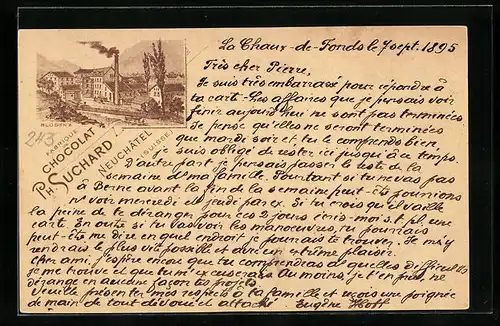 La Chaux-de-Fonds le 7 sept. 1895
Très cher Pierre,
Je suis très embarrassé pour répondre à
ta carte - Les affaires que je pensais voir
finir aujourd'hui ne sont pas terminées
Je pense qu'elles ne seront terminées
que mardi soir et tu le comprends bien,
je suis obligé de rester ici jusqu'à ce temps.
D'autre part je pensais passer le reste de la
semaine et ma famille. Pourtant si tu ne vas pas
à Berne avant la fin de la semaine peut-être pourrions
ns voir mercredi et jeudi par ex. Si tu crois qu'il vaille
la peine de te déranger pour ces 2 jours écris-moi s.t.pl. une
carte. En outre si tu vas voir les manoeuvres, tu pourrais
peut-être me dire en quel endroit je pourrais te trouver. Je m'y
rendrais le plus vite possible et avec un extrême plaisir.
Cher ami, j'espère encore que tu comprendras à quelles difficultés
je me trouve et que tu m'excuseras. Au moins, je t'en prie, ne
dérange en aucune façon tes projets.
Veuille présenter mes respects à ta famille et reçois une poignée
de main de tout dévoué et attaché Eugène
BLUDENZ
243
FABRIQUE
CHOCOLAT
PH. SUCHARD
NEUCHÂTEL
(SUISSE)